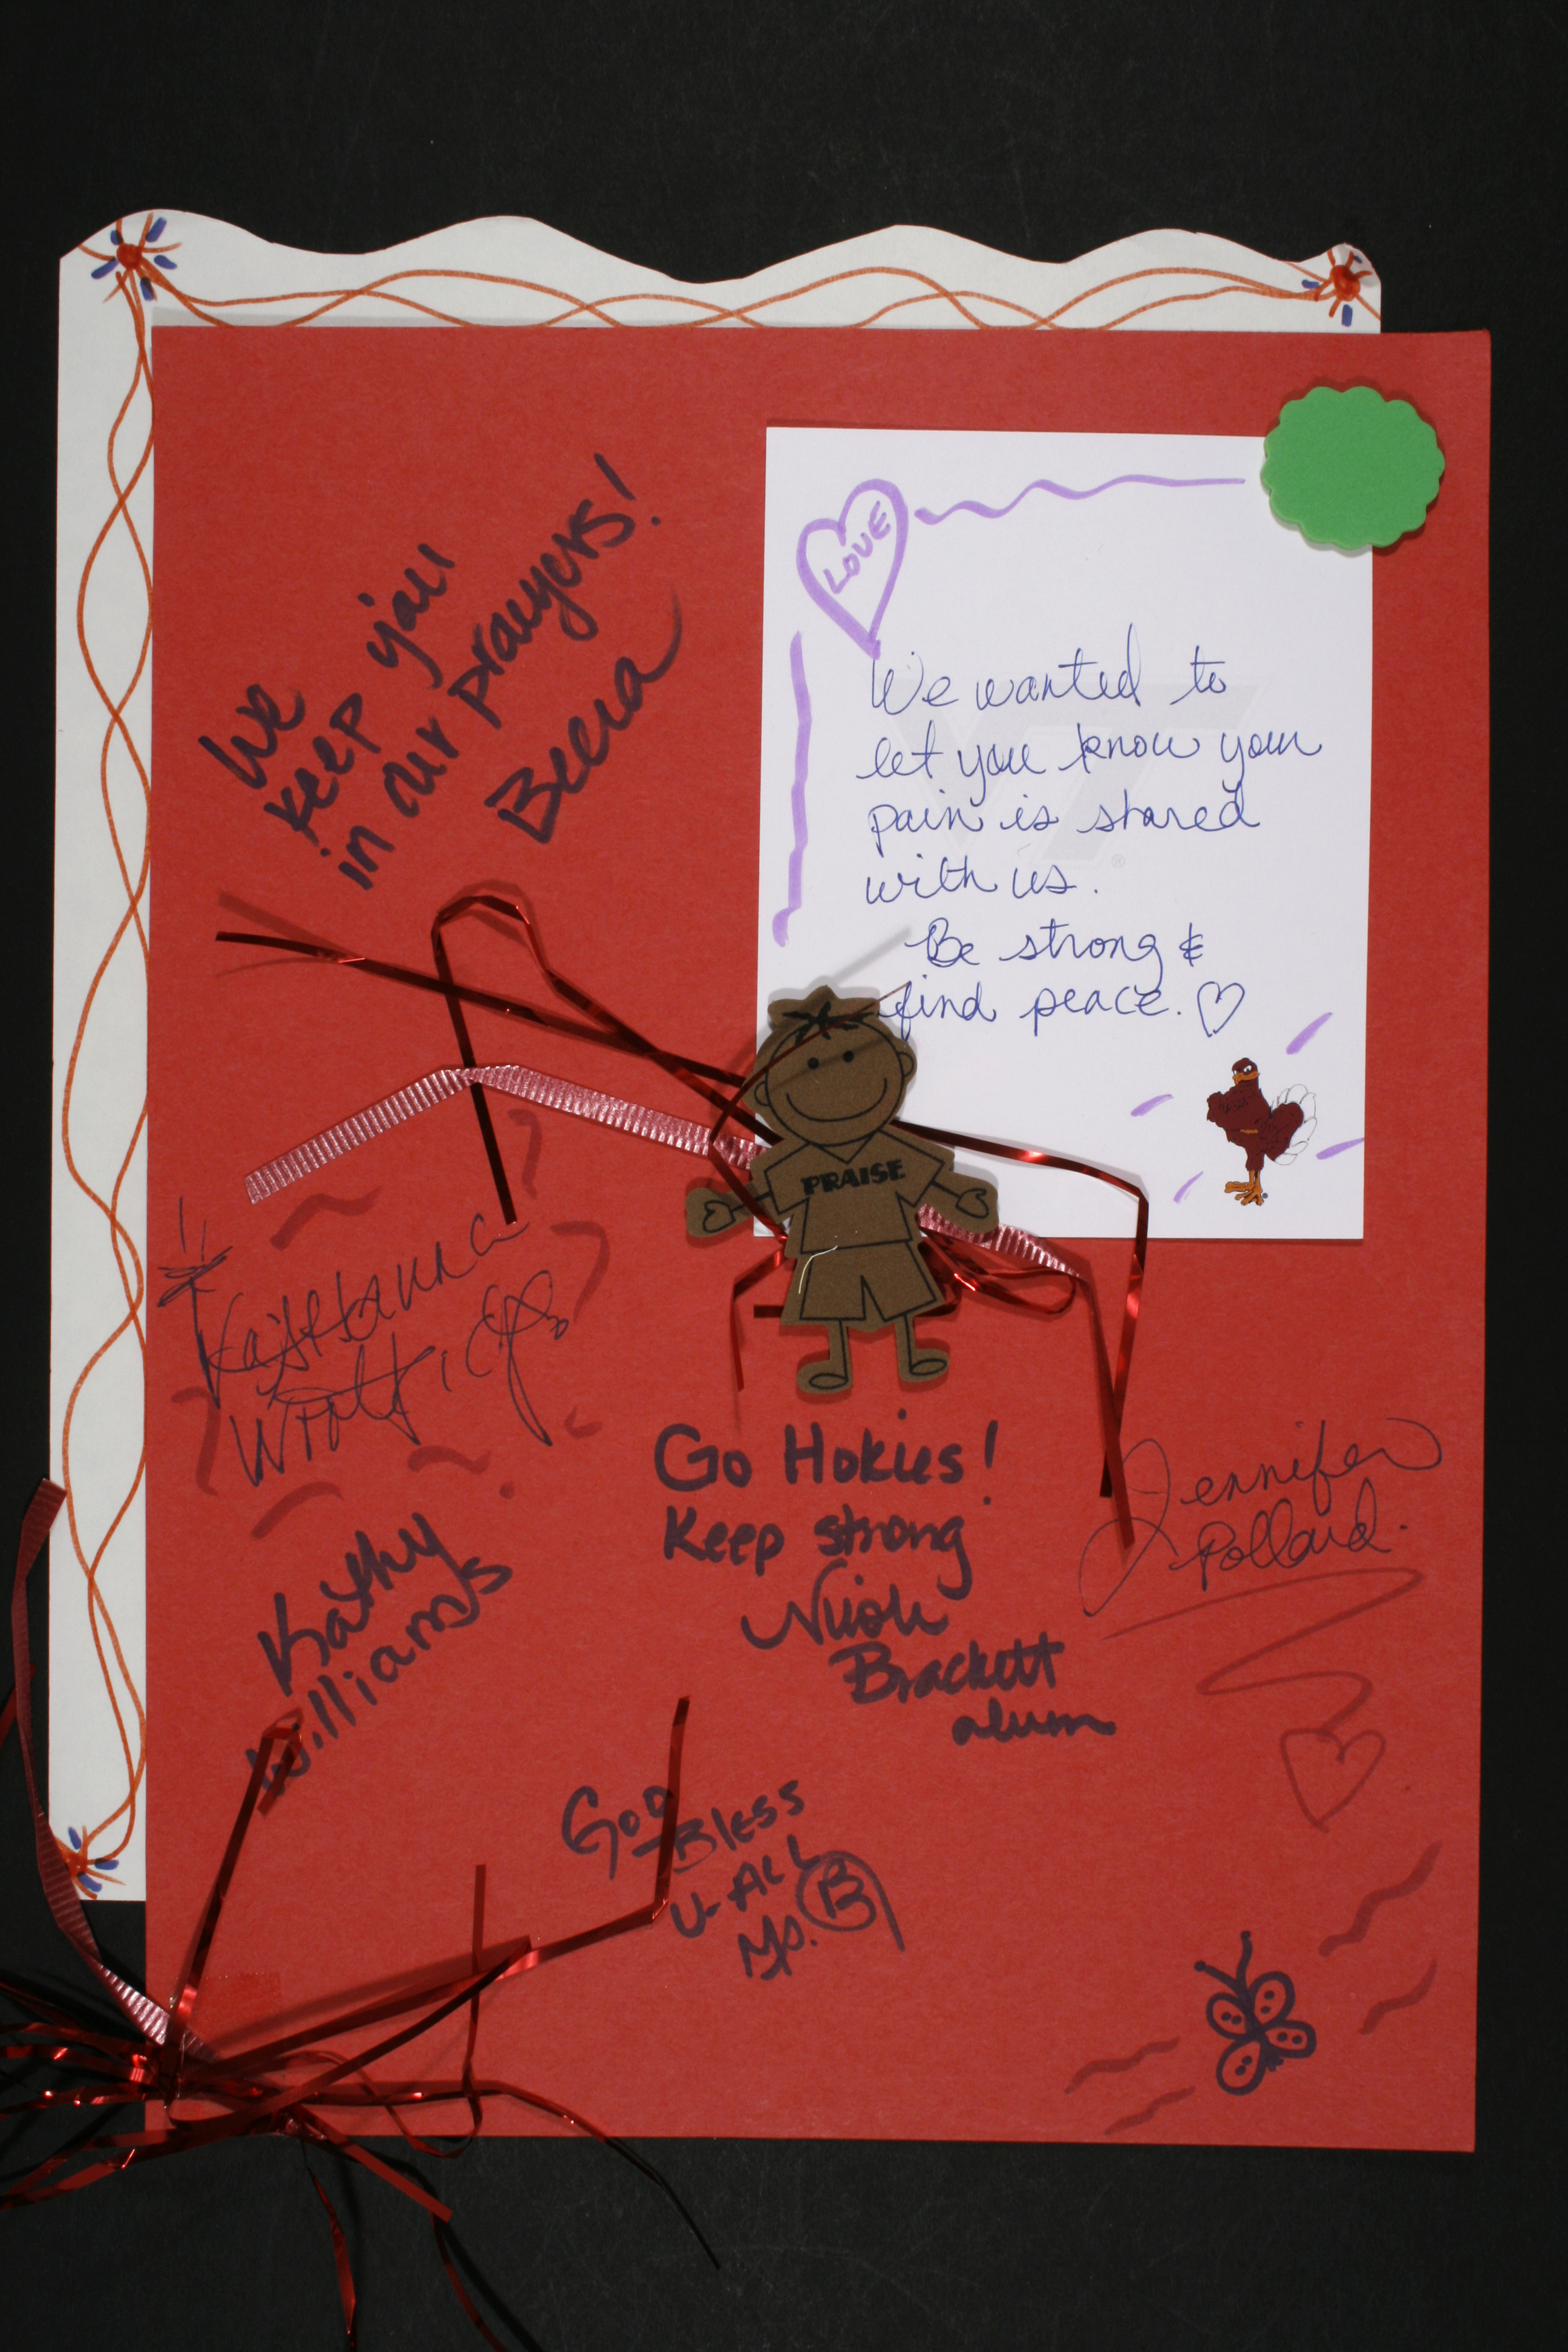 We
keep y'all
in our prayers!
Becca
LOVE
We wanted to
let you know your
pain is shared
with us.
Be strong &
find peace. ♡
VT
®
PRAISE
Go Hokies!
Keep strong
Nicole
Brackett
alum
Jennifer
Pollard.
Kathy
Williams
God
Bless
U-All
Ms. B